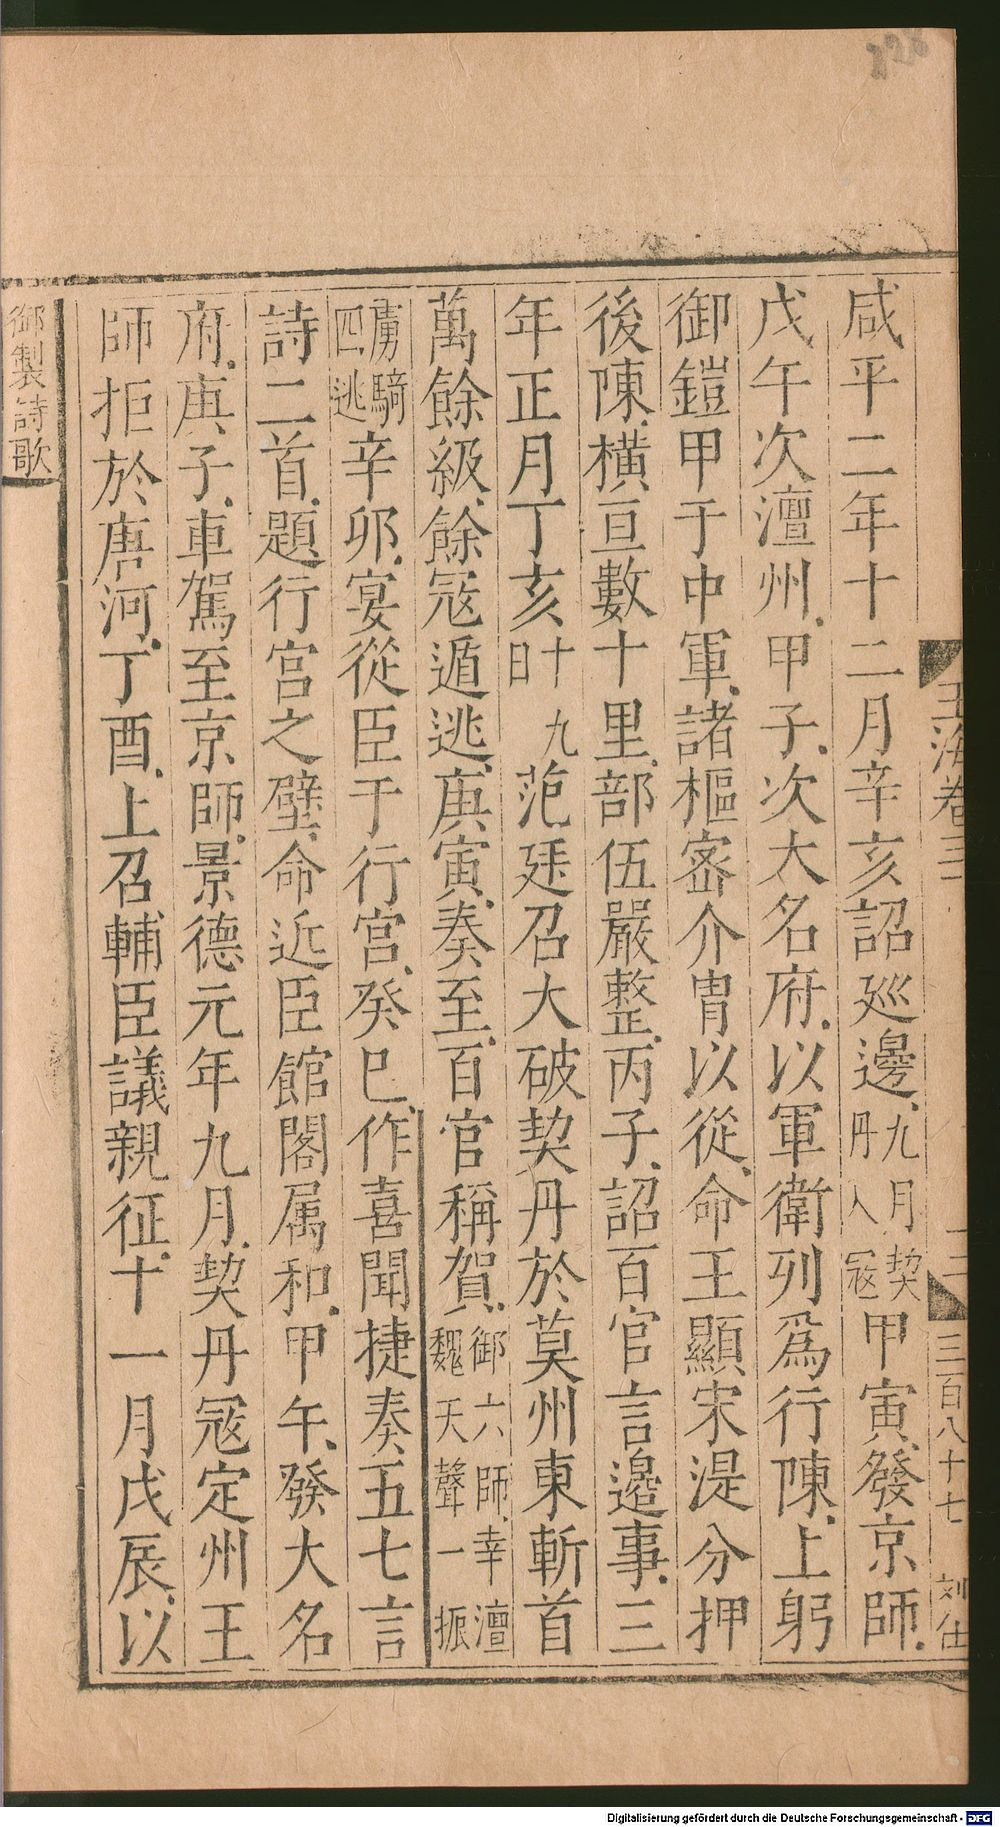 咸平二年十二月辛亥詔廵邊九月契丹入冦甲寅發京師
戊午次澶州甲子次大名府以軍衛列爲行陳上躬
御鎧甲于中軍諸樞宻介胄以從命王顯宋湜分押
後陳橫亘數十里部伍嚴整丙子詔百官言邉事三
年正月丁亥十九日范廷召大破契丹於莫州東斬首
萬餘級餘冦遁逃庚寅奏至百官稱賀御六師幸澶魏天聲一振
虜騎四逃辛卯宴從臣于行宮癸巳作喜聞捷奏五七言
詩二首題行宮之壁命近臣館閣属和甲午發大名
府庚子車駕至京師景德元年九月契丹冦定州王
師拒於唐河丁酉上召輔臣議親征十一月戊辰以
御製詩歌
玉海卷三
二
三百八十七
刘仕
Digitalisierung gefördert durch die Deutsche Forschungsgemeinschaft - DFG